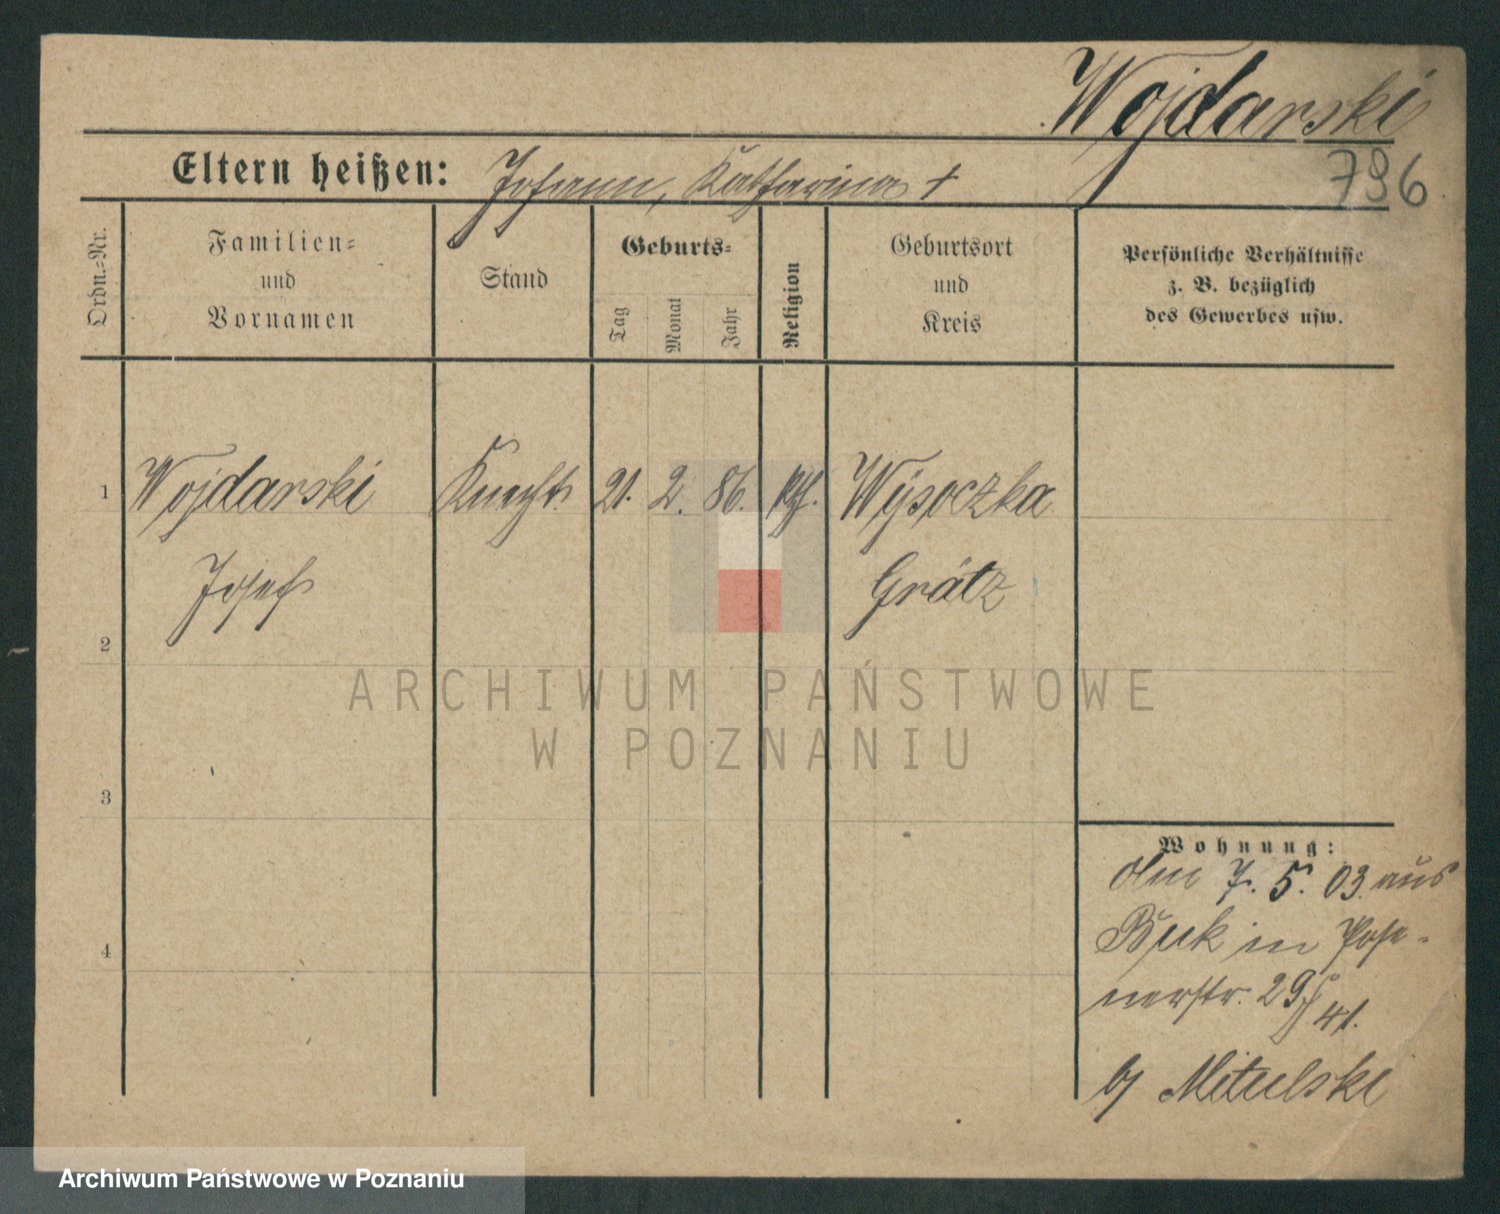 Wojdarski
796
Eltern heißen: Johann, Katharina †
Ordn.-Nr.
Familien-
und
Vornamen
Stand
Geburts-
Tag
Monat
Jahr
Religion
Geburtsort
und
Kreis
Persönliche Verhältnisse
z. B. bezüglich
des Gewerbes usw.
1 Wojdarski Knecht 21. 2. 86. kth. Wysoczka
Josef Grätz
2
3
4
Wohnung:
7. 5. 03. aus
Buk in Pose-
nerstr. 29/41.
b/ Mitulski
ARCHIWUM PAŃSTWOWE
W POZNANIU
Archiwum Państwowe w Poznaniu